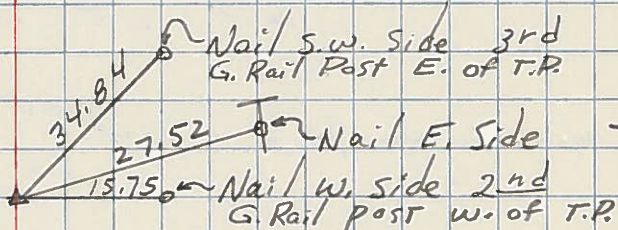 Nail S.W. Side 3rd
G. Rail Post E. of T.P.
34.84
27.52
Nail E. Side
15.75
Nail W. Side 2nd
G. Rail post W. of T.P.